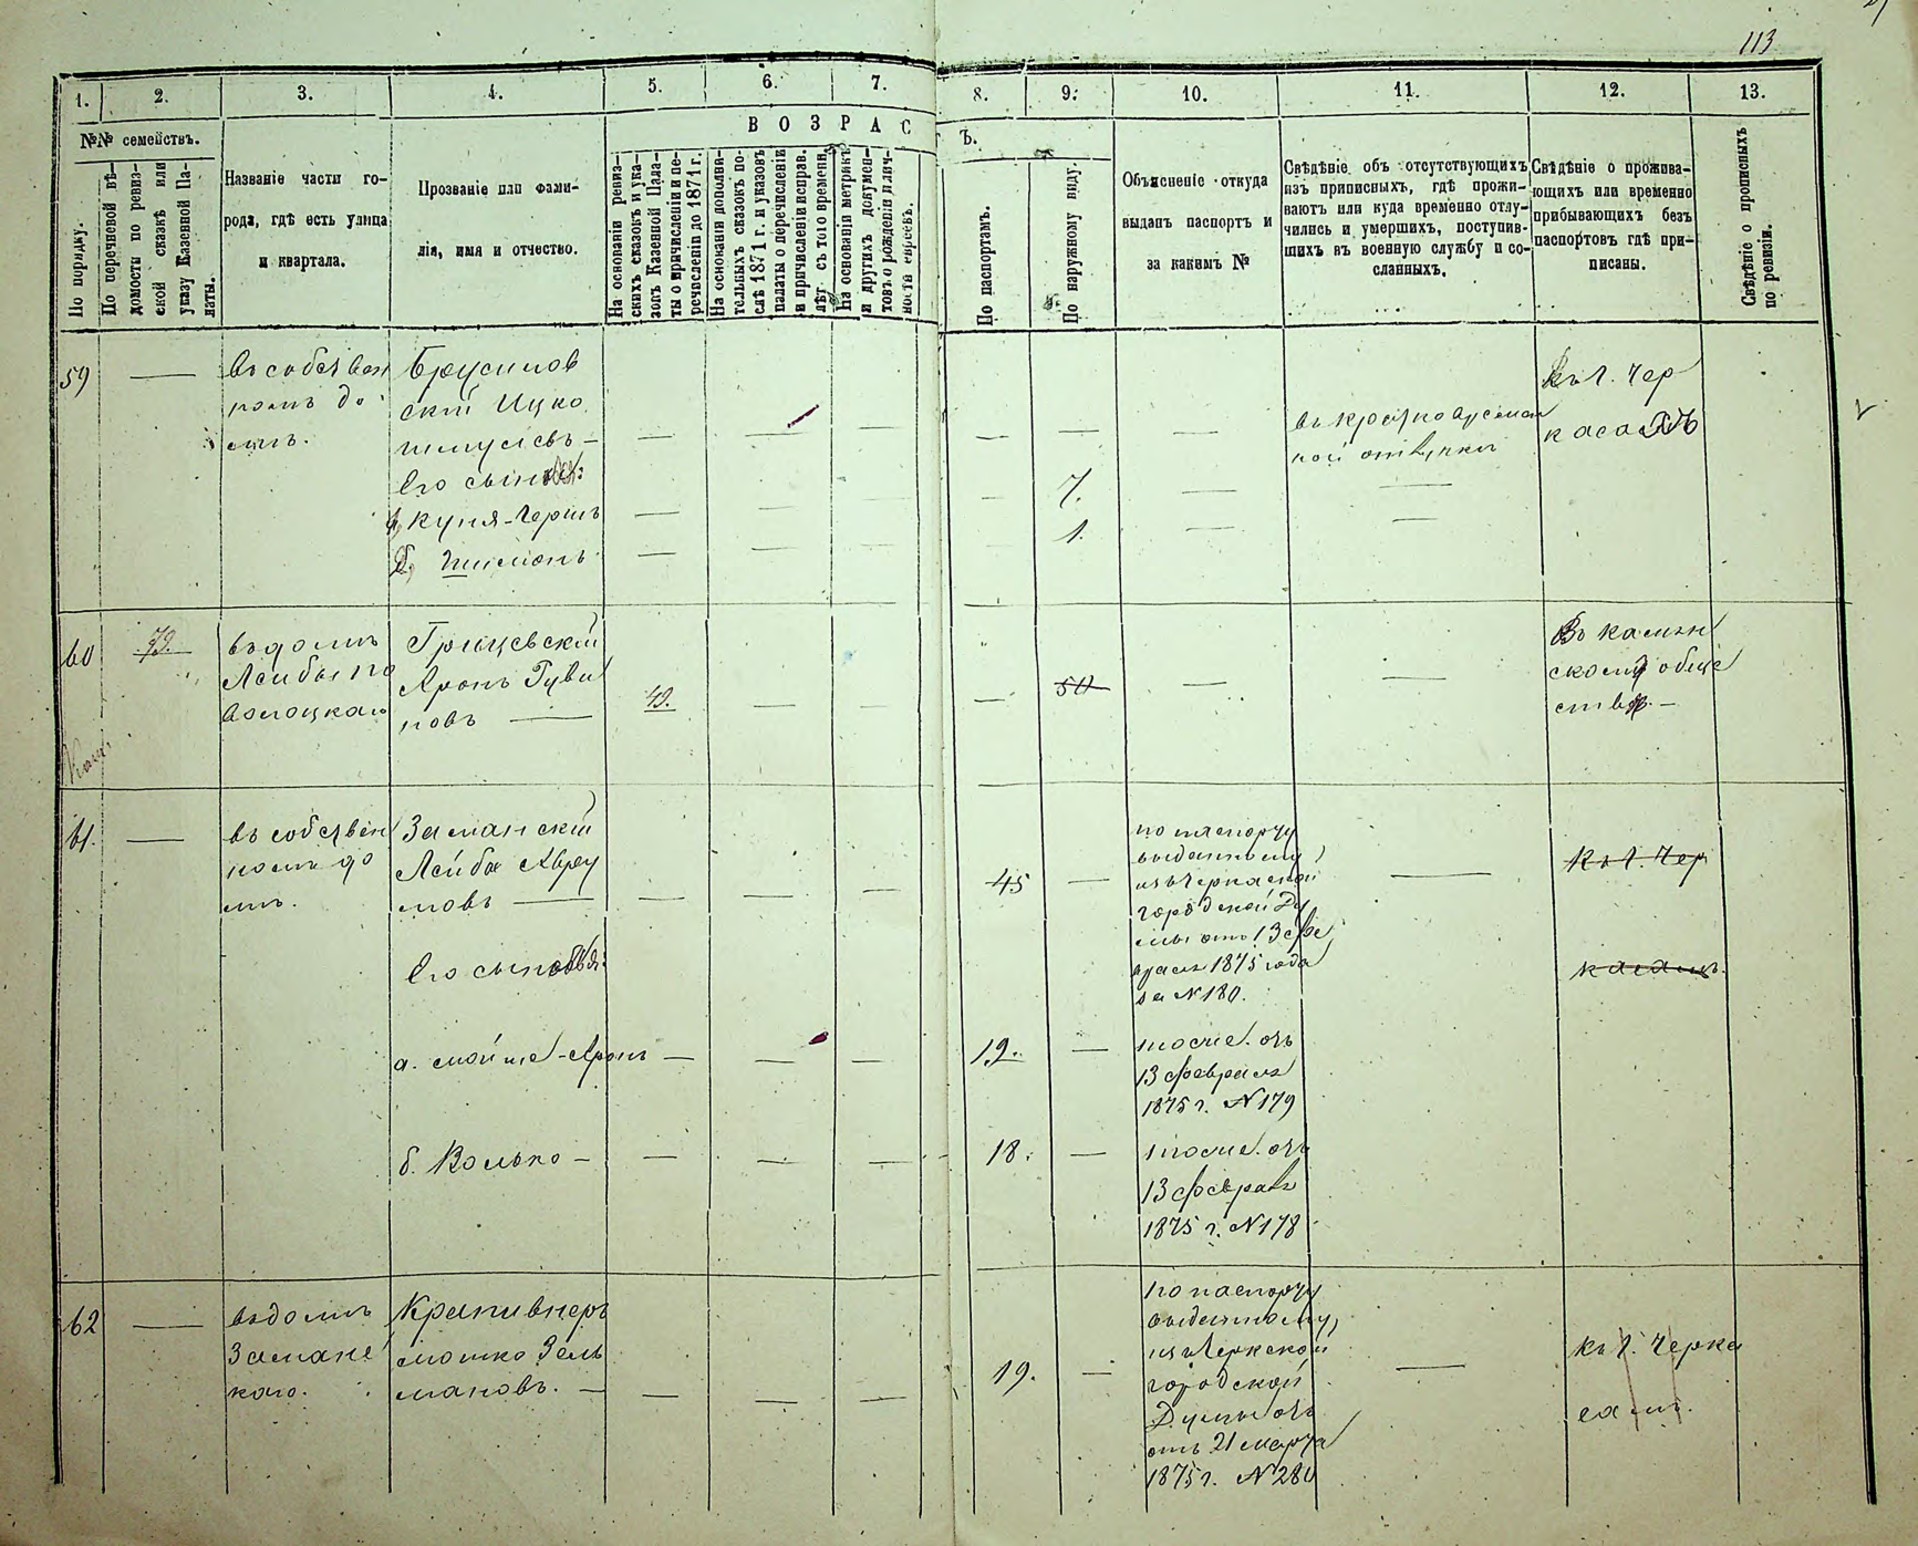 113
1. 2. 3. 4. 5. 6. 7. 8. 9. 10. 11. 12. 13.
№№ семействъ.
По порядку.
По перечневой вѣ-
домости по ревиз-
ской сказкѣ или
указу Казенной Па-
латы.
Названіе части го-
рода, гдѣ есть улица
и квартала.
Прозваніе или фами-
лія, имя и отчество.
ВОЗРАСТЪ.
На основаніи ревиз-
скихъ сказокъ и ука-
зовъ Казенной Пала-
ты о причисленіи и пе-
речисленіи до 1871 г.
На основаніи дополни-
тельныхъ сказокъ по-
слѣ 1871 г. и указовъ
палаты о перечисленіи
и причисленіи исправ.
лѣт съ того времени.
На основаніи метрикъ
и другихъ докумен-
товъ о рожденіи и лич-
ности евреевъ.
По паспортамъ.
По наружному виду.
Объясненіе откуда
выданъ паспортъ и
за какимъ №
Свѣдѣніе объ отсутствующихъ
изъ приписныхъ, гдѣ прожи-
ваютъ или куда временно отлу-
чились и умершихъ, поступив-
шихъ въ военную службу и со-
сланныхъ.
Свѣдѣніе о прожива-
ющихъ или временно
прибывающихъ безъ
паспортовъ гдѣ при-
писаны.
Свѣдѣніе о прописныхъ
по ревизіи.
59
въ собствен
номъ до
мѣ.
Брусилов
скій Ицко
Шмулевъ
Его сыновья:
а, Куня-Герш
б, Шимонъ
7.
1.
въ кратковремен
ной отлучкѣ
Къ г. Чер
касамъ
60
79.
въ домѣ
Лейбы По
волоцкаго
Грицевскій
Аронъ Гуви
новъ
49.
50
Въ Камен
скомъ обще
ствѣ.
61.
въ собствен
номъ до
мѣ.
Заманскій
Лейба Авру
мовъ
Его сыновья:
45
по паспорту
выданному
изъ Черкаской
городской Ду
мы отъ 13 фе
враля 1875 года
за № 180.
Къ г. Чер
касамъ.
а. Мойше-Аронъ
19.
тоже отъ
13 февраля
1875 г. № 179
б. Волько
18.
тоже отъ
13 февраля
1875 г. № 178
62
въ домѣ
Заманс
каго.
Крапивнеръ
Мошко Зель
мановъ.
19.
по паспорту
выданному
изъ Черкской
городской
Думы отъ
отъ 21 марта
1875 г. № 280
къ г. Черка
самъ.